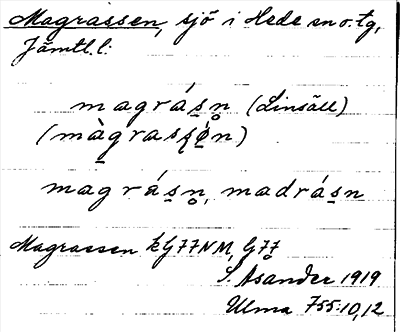 Magrassen, sjö i Hede sn o. tg,
Jämtl. l.
magrás̱n̥ (Linsäll)
(mà̱grasʂǿ̱n)
magrás̱n̥, madrás̱n
Magrassen kG77NM, G77
S. Åsander 1919
Ulma 755:10,12